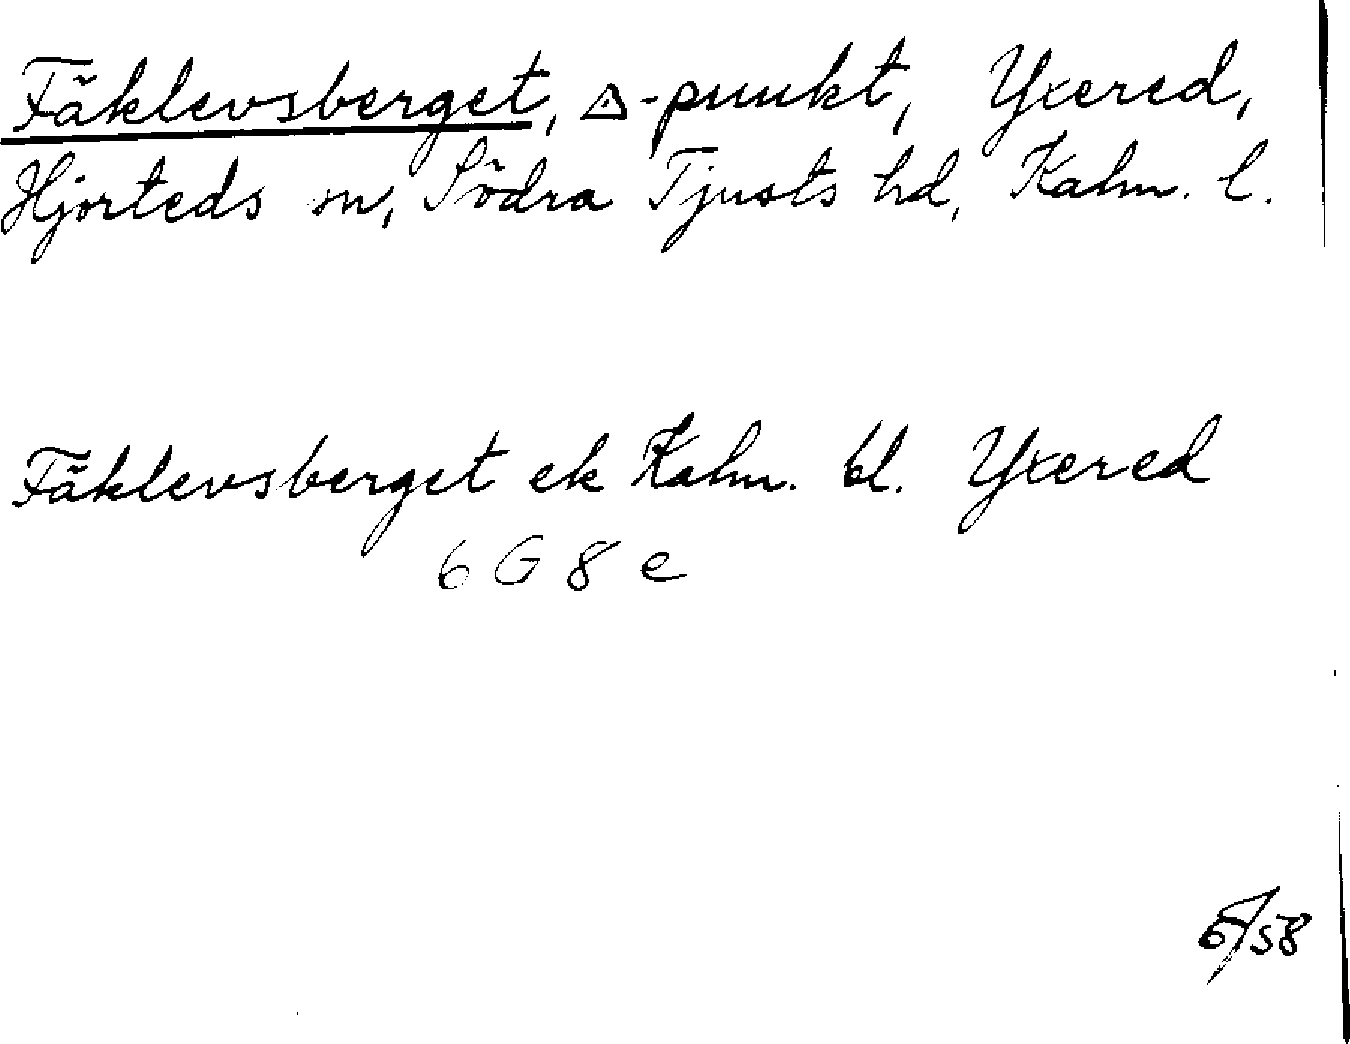 Fäklevsberget, △-punkt, Yxered,
Hjorteds sn, Södra Tjusts hd, Kalm. l.
Fäklevsberget ek Kalm. bl. Yxered
6 G 8 e